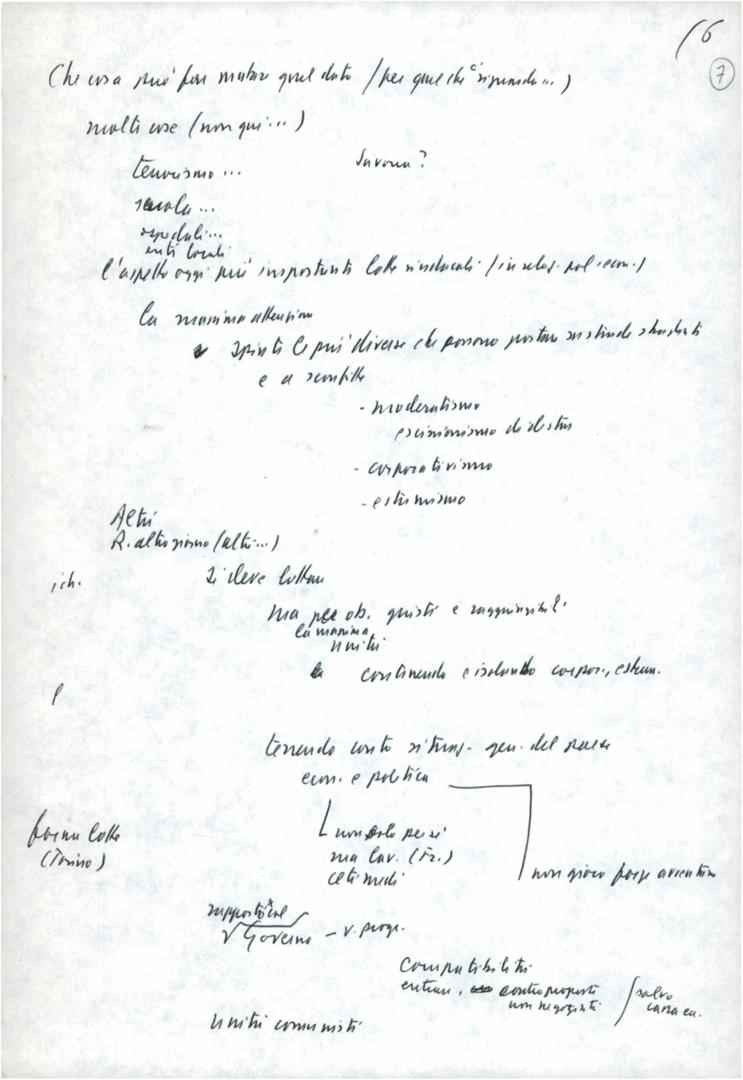 16
7
Che cosa può far mutare quel dato (per quel che riguarda...)
molte cose (non qui...)
terrorismo... Savona?
scuola...
ospedali...
enti locali
l'aspetto oggi più importante lotte sindacali (in relaz. pol. econ.)
la massima attenzione
spinte le più diverse che possono portare su strade sbagliate
e a sconfitte
- moderatismo
scissionismo di destra
- corporativismo
- estremismo
Altri
R. altro giorno (altri...)
Si deve lottare
ma per ob. giusti e raggiungibili
la massima
unità
contenendo e isolando corpor., estrem.
tenendo conto situaz. gen. del paese
econ. e politica
forme lotte
(Torino)
non solo per sé
ma lav. (Fz.)
ceti medi
non gioco forze avventur
rapporto col
Governo - v. progr.
Compatibilità
entrare, controproposte
non negoziati
salvo
unità comunisti